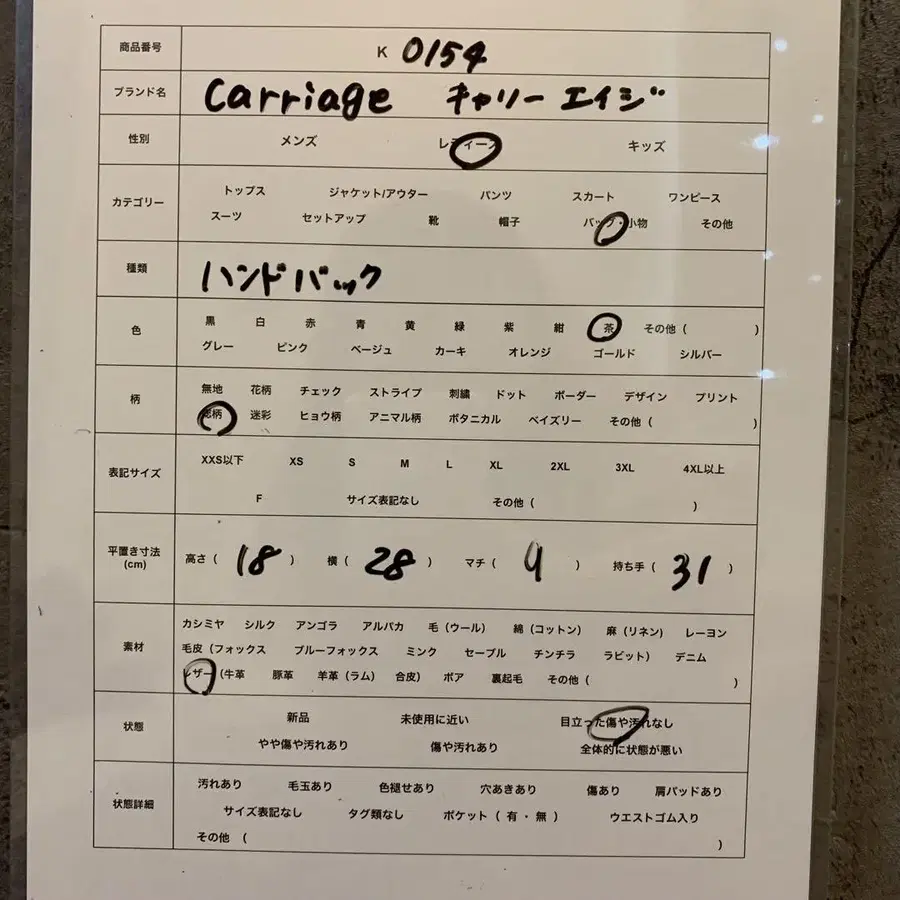 商品番号 K 0154
ブランド名 Carriage キャリーエイジ
性別 メンズ レディース キッズ
カテゴリー トップス ジャケット/アウター パンツ スカート ワンピース
スーツ セットアップ 靴 帽子 バッグ・小物 その他
種類 ハンドバック
色 黒 白 赤 青 黄 緑 紫 紺 茶 その他 ( )
グレー ピンク ベージュ カーキ オレンジ ゴールド シルバー
柄 無地 花柄 チェック ストライプ 刺繍 ドット ボーダー デザイン プリント
総柄 迷彩 ヒョウ柄 アニマル柄 ボタニカル ペイズリー その他 ( )
表記サイズ XXS以下 XS S M L XL 2XL 3XL 4XL以上
F サイズ表記なし その他 ( )
平置き寸法 (cm) 高さ ( 18 ) 横 ( 28 ) マチ ( 9 ) 持ち手 ( 31 )
素材 カシミヤ シルク アンゴラ アルパカ 毛 (ウール) 綿 (コットン) 麻 (リネン) レーヨン
毛皮 (フォックス ブルーフォックス ミンク セーブル チンチラ ラビット) デニム
レザー (牛革 豚革 羊革 (ラム) 合皮) ボア 裏起毛 その他 ( )
状態 新品 未使用に近い 目立った傷や汚れなし
やや傷や汚れあり 傷や汚れあり 全体的に状態が悪い
状態詳細 汚れあり 毛玉あり 色褪せあり 穴あきあり 傷あり 肩パッドあり
サイズ表記なし タグ類なし ポケット ( 有・無 ) ウエストゴム入り
その他 ( )